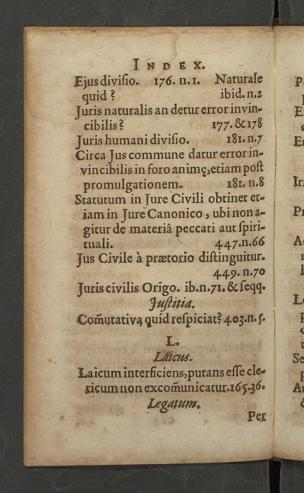 INDEX.
Ejus divisio. 176. n.1. Naturale
quid? ibid. n.2
Juris naturalis an detur error invin-
cibilis? 177. & 178
Juris humani divisio. 181. n.7
Circa Jus commune datur error in-
vincibilis in foro animę, etiam post
promulgationem. 181. n.8
Statutum in Jure Civili obtinet et-
iam in Jure Canonico, ubi non a-
gitur de materiâ peccati aut spiri-
tuali. 447. n.66
Jus Civile à prætorio distinguitur.
449. n.70
Juris civilis Origo. ib. n.71. & seqq.
Justitia.
Com̃utativa quid respiciat? 403. n.5.
L.
Laicus.
Laicum interficiens, putans esse cle-
ricum non excom̃unicatur. 165. 36.
Legatum.
Per